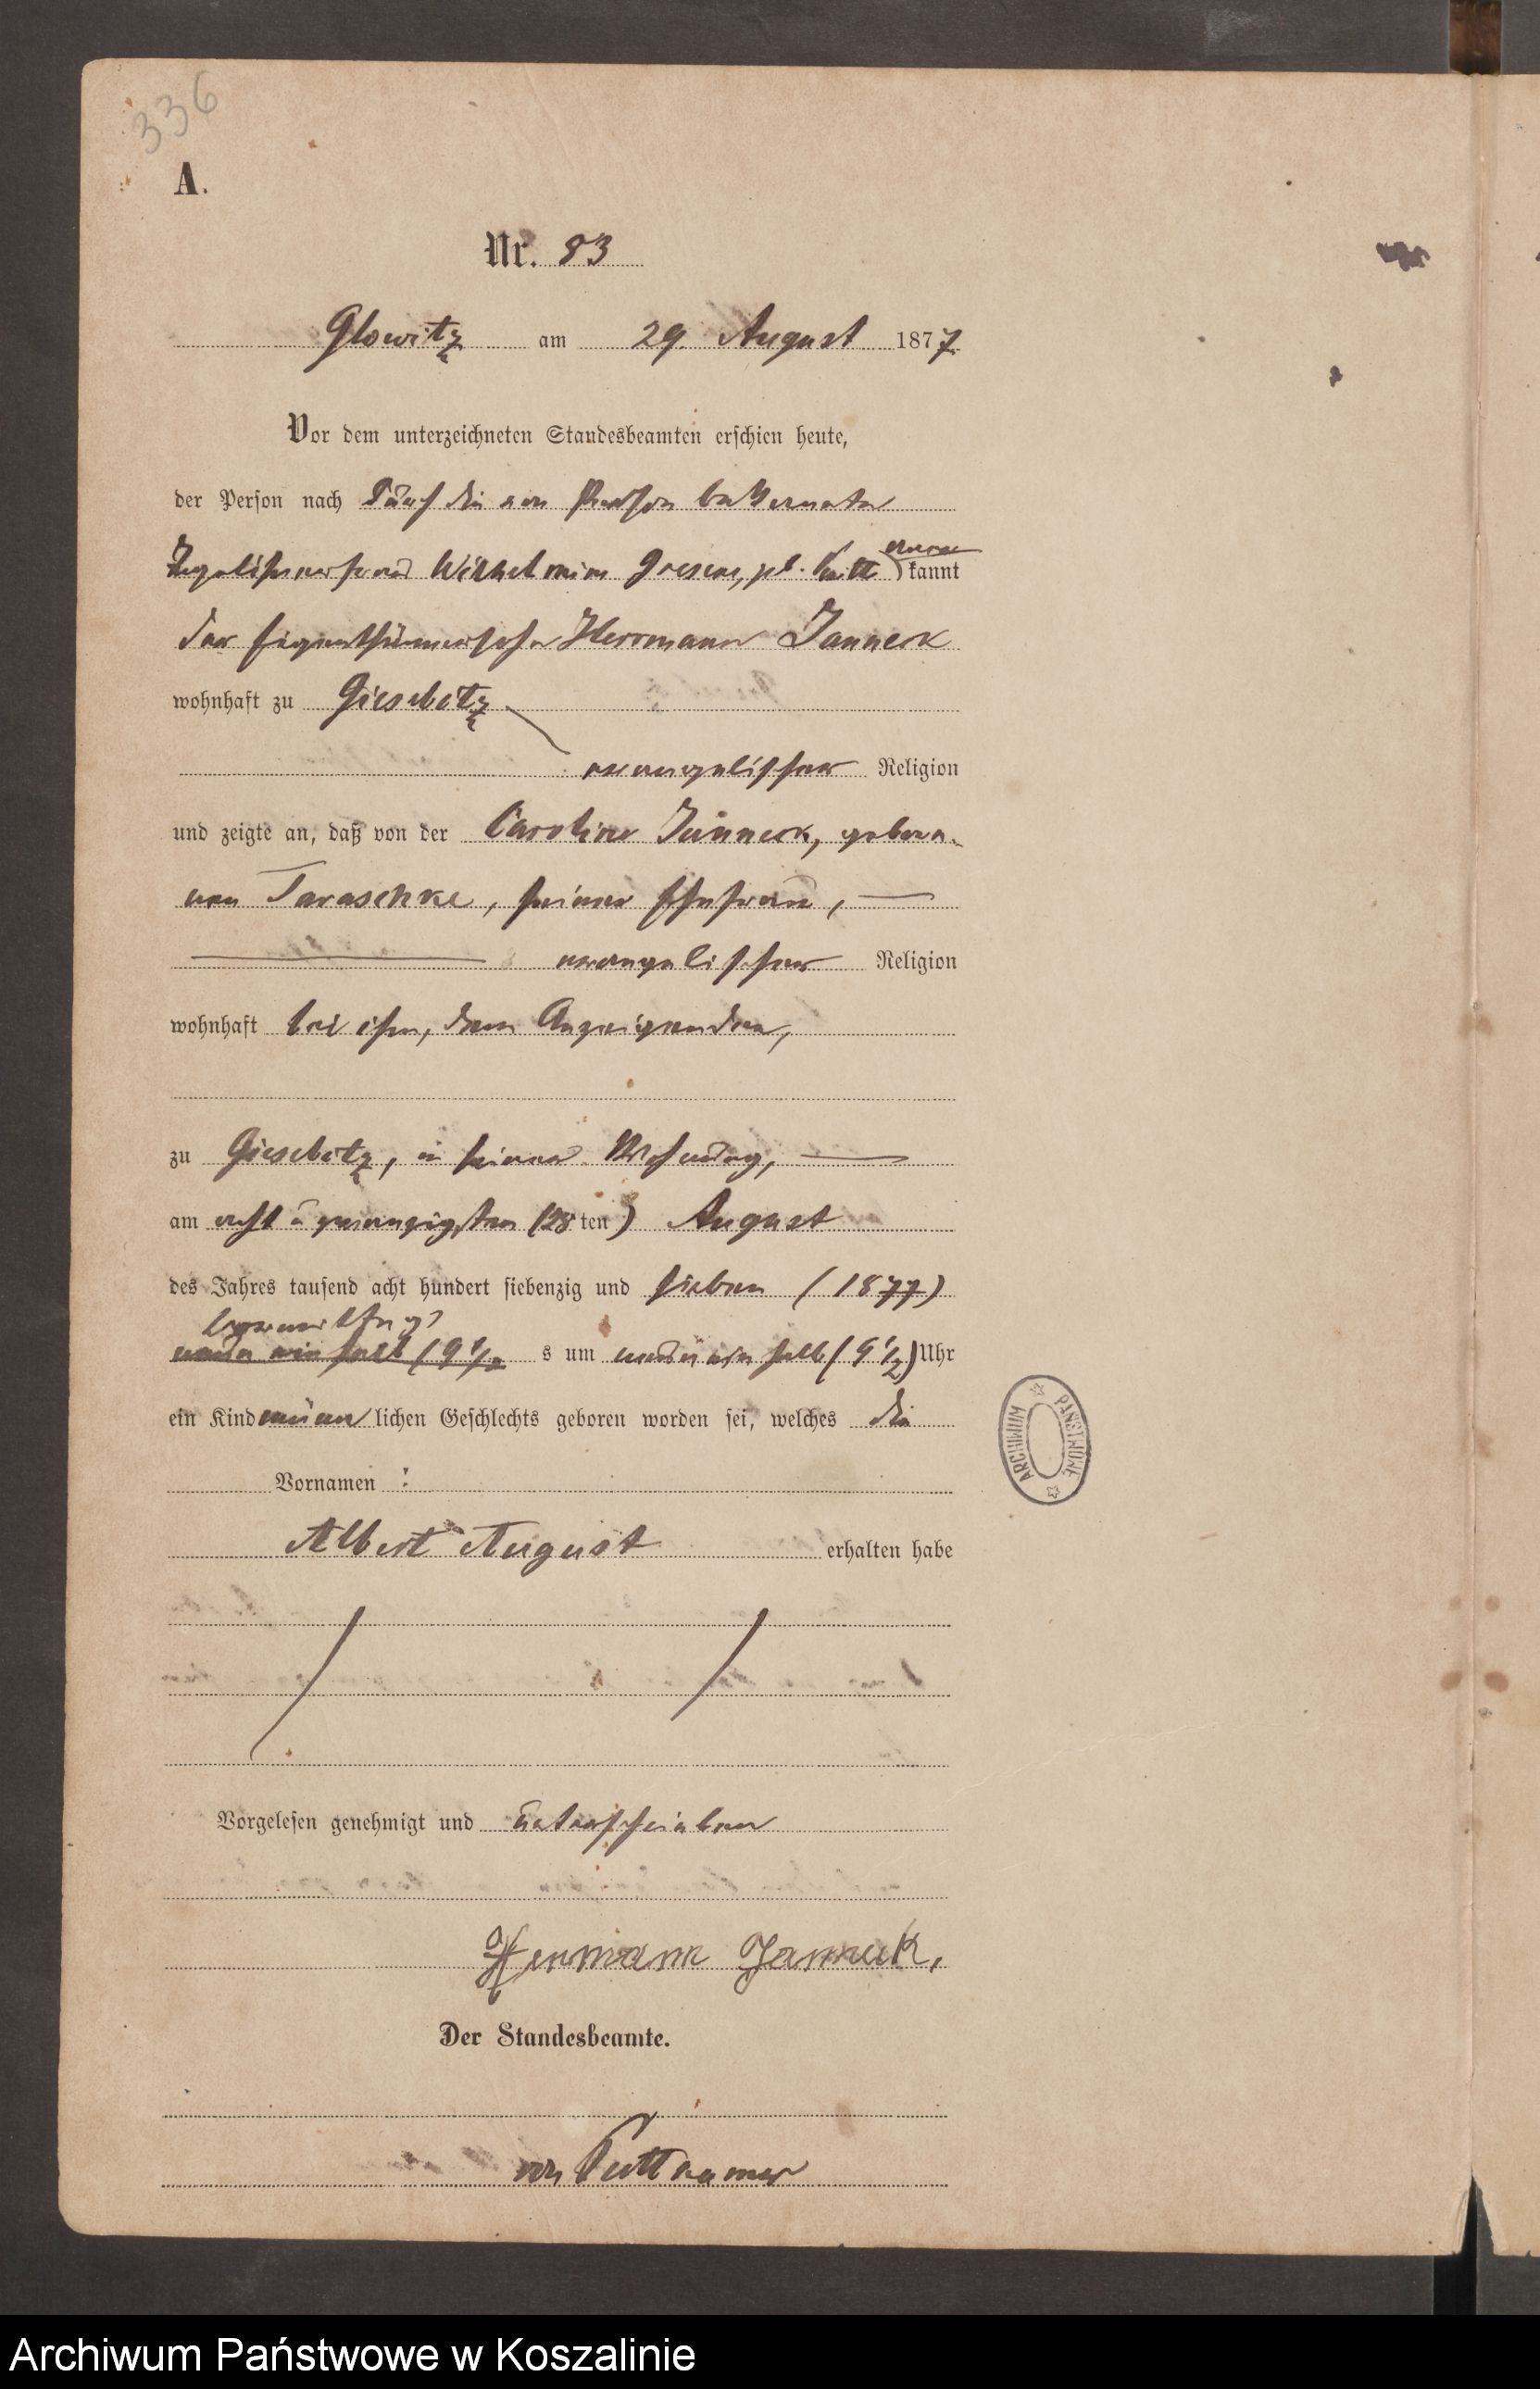 336
A.
Nr. 83
Glowitz am 29. August 1877.
Vor dem unterzeichneten Standesbeamten erschien heute,
der Person nach durch die von Person bekannte
Wilhelmine kannt
der Eigenthümersohn Herrmann Janneck
wohnhaft zu Giesebitz
evangelischer Religion
und zeigte an, daß von der Caroline Janneck, gebore-
nen Taraschke, seiner Ehefrau,
evangelischer Religion
wohnhaft bei ihm, dem Anzeigenden,
zu Giesebitz, in seiner Wohnung,
am acht u zwanzigsten (28ten) August
des Jahres tausend acht hundert siebenzig und sieben (1877)
Vormittag
halb (9 1/2 s um neun ein halb (9 1/2) Uhr
ein Kind männlichen Geschlechts geboren worden sei, welches die
Vornamen :
Albert August erhalten habe
Vorgelesen genehmigt und unterschrieben
Hermann Janneck,
Der Standesbeamte.
von Puttkamer
ARCHIWUM PAŃSTWOWE
Archiwum Państwowe w Koszalinie